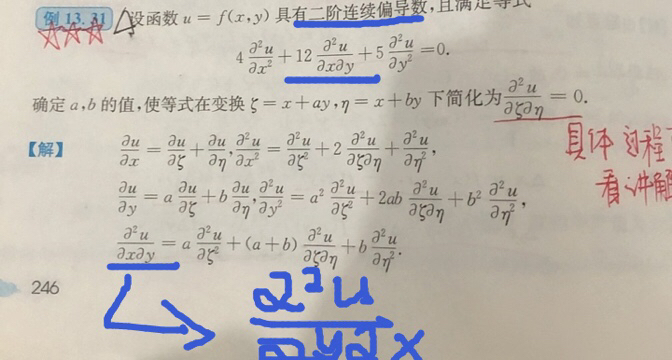 例 13.31 设函数 u = f(x,y) 具有二阶连续偏导数,且满足等式
4 ∂²u/∂x² + 12 ∂²u/∂x∂y + 5 ∂²u/∂y² = 0.
确定 a,b 的值,使等式在变换 ζ = x + ay, η = x + by 下简化为 ∂²u/∂ζ∂η = 0.
【解】 ∂u/∂x = ∂u/∂ζ + ∂u/∂η, ∂²u/∂x² = ∂²u/∂ζ² + 2 ∂²u/∂ζ∂η + ∂²u/∂η²,
具体过程
看讲解
∂u/∂y = a ∂u/∂ζ + b ∂u/∂η, ∂²u/∂y² = a² ∂²u/∂ζ² + 2ab ∂²u/∂ζ∂η + b² ∂²u/∂η²,
∂²u/∂x∂y = a ∂²u/∂ζ² + (a+b) ∂²u/∂ζ∂η + b ∂²u/∂η².
246
∂²u/∂y∂x